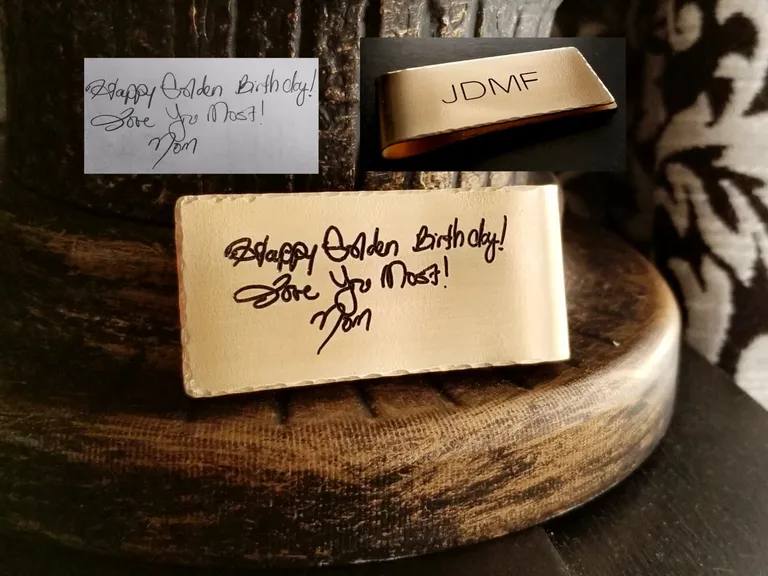 Happy Golden Birthday!
Love You Most!
Mom
JDMF
Happy Golden Birthday!
Love You Most!
Mom